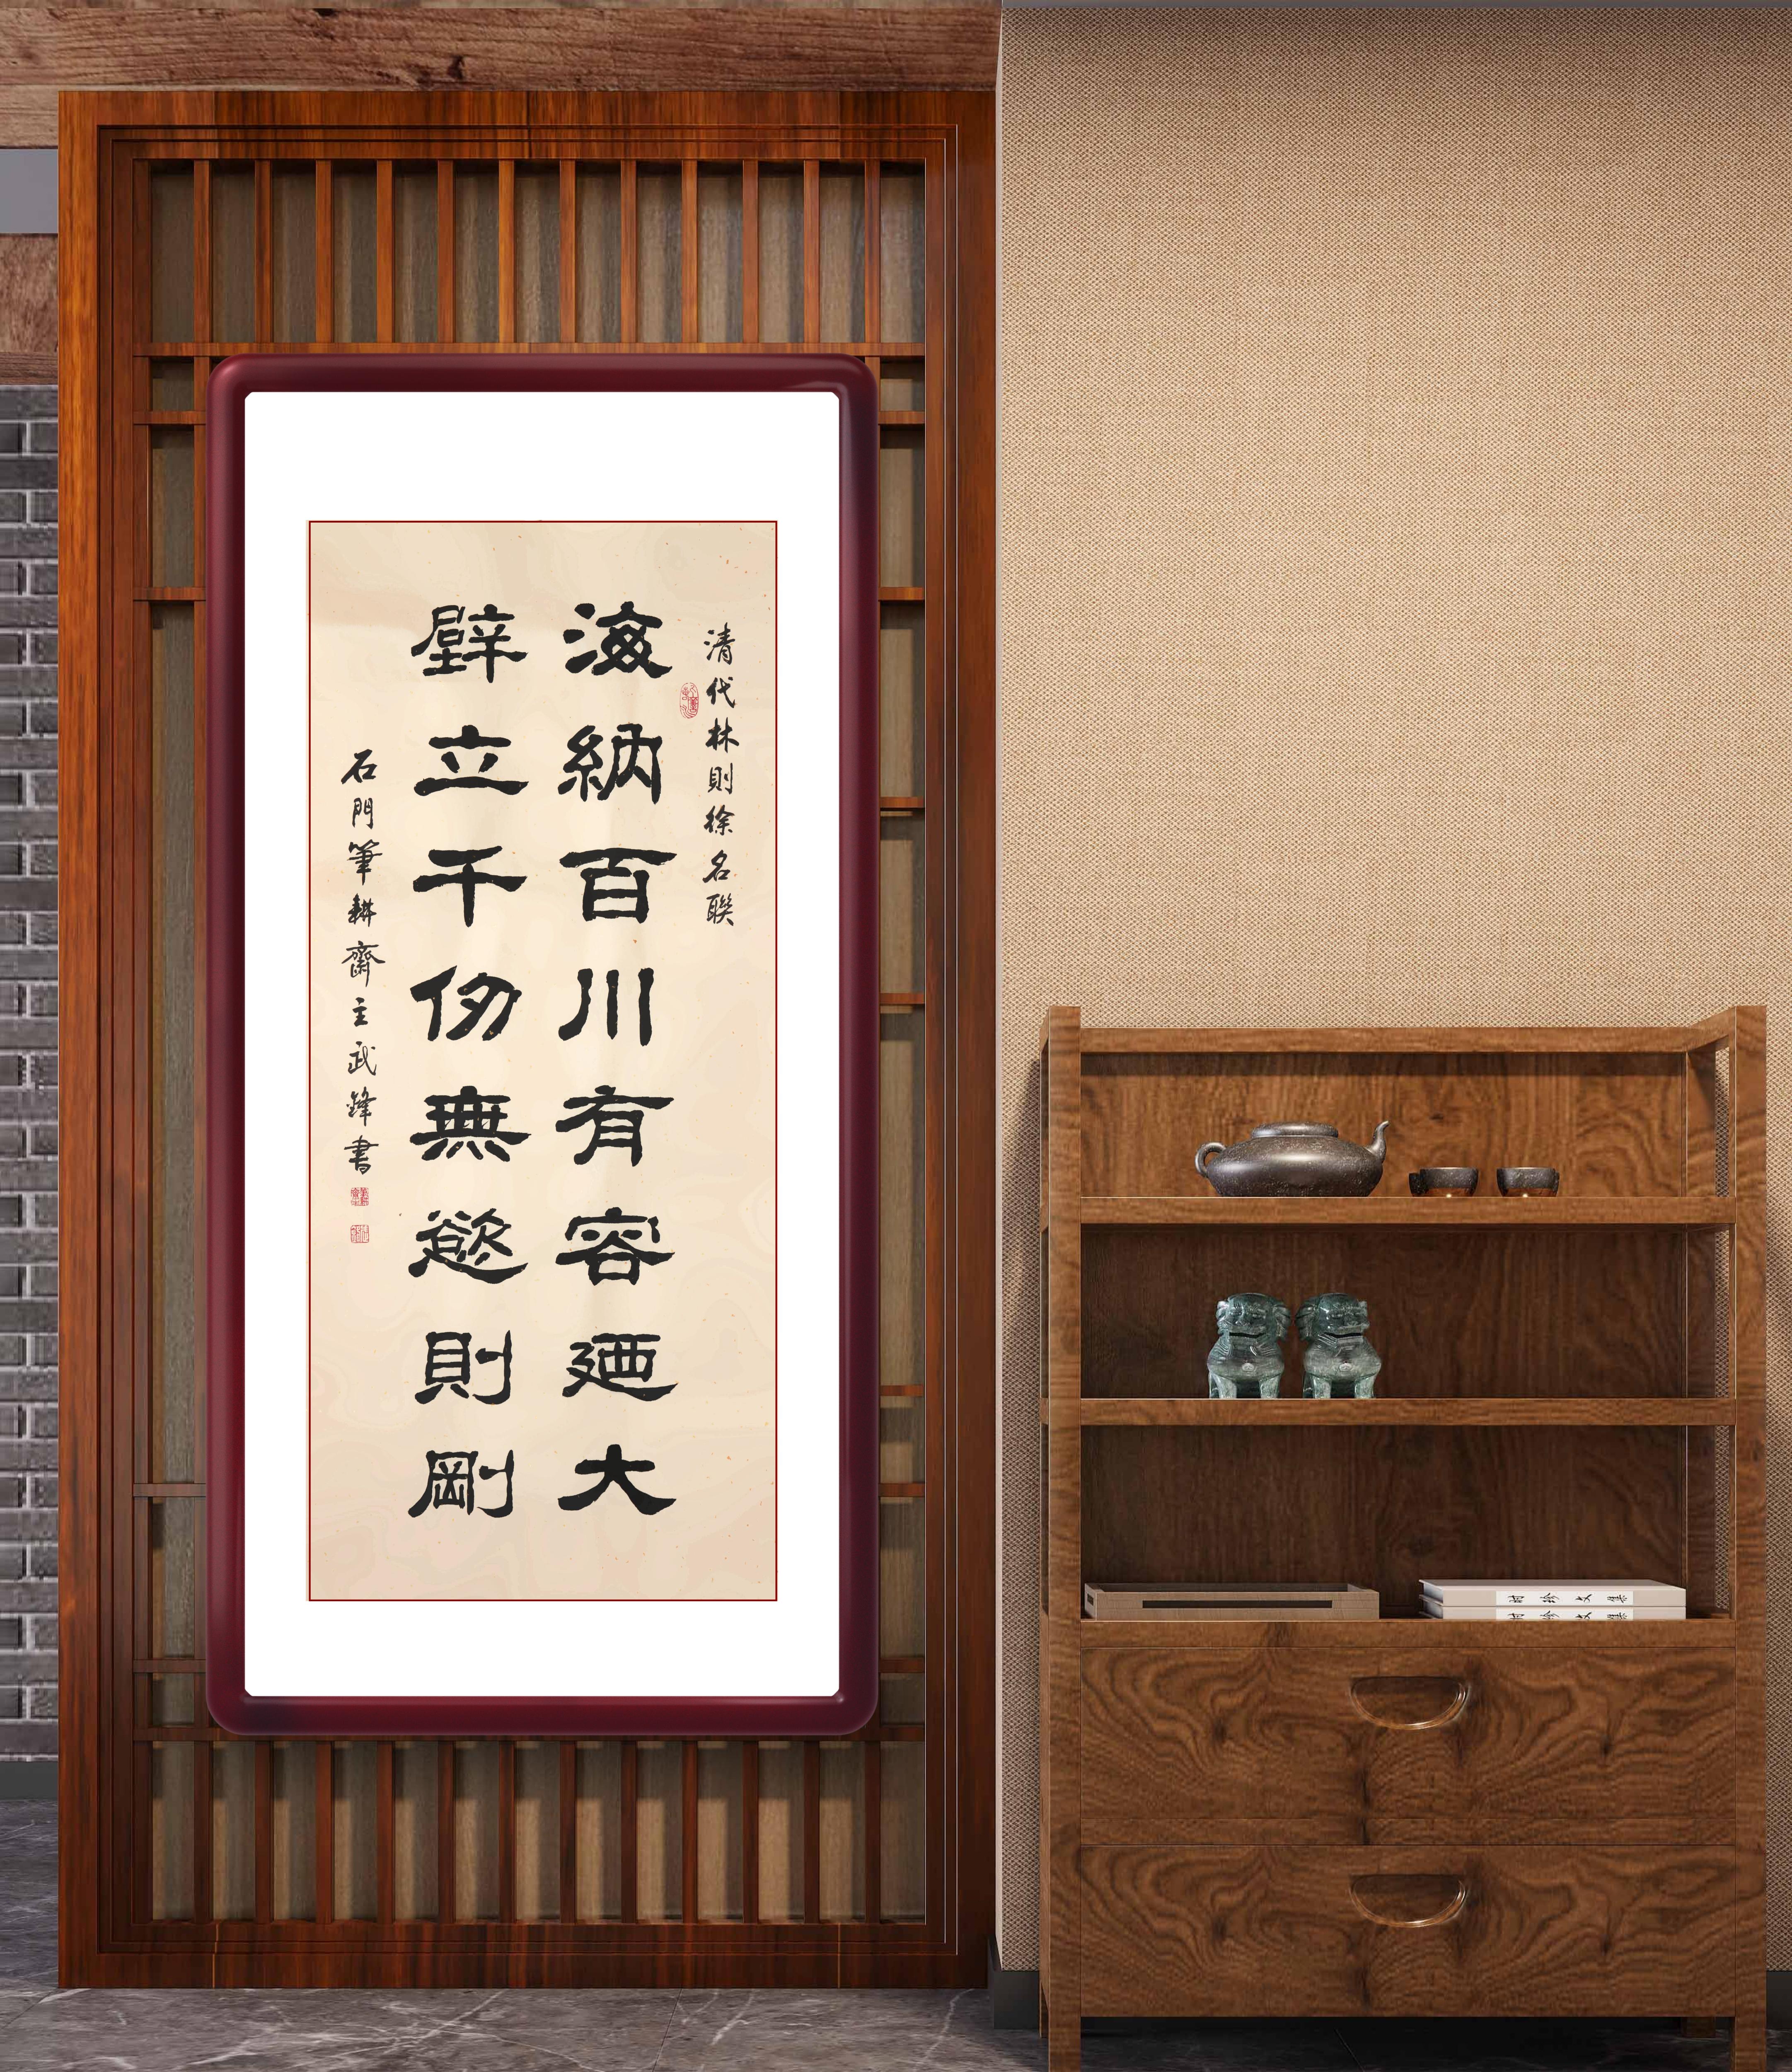 清代林則徐名聯
海納百川有容廼大
壁立千仞無慾則剛
石門筆耕齋主武鋒書